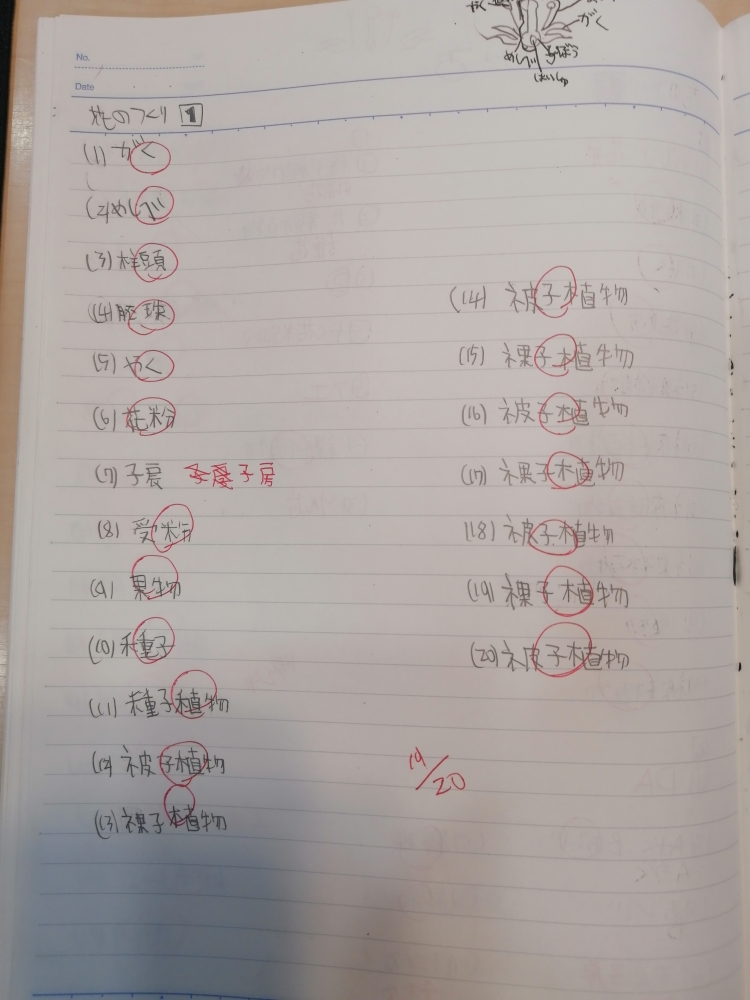 がく
めしべ
No.
Date
花のつくり 1
(1) がく
(2) めしべ
(3) 柱頭
(4) 胚珠
(5) やく
(6) 花粉
(7) 子房 子房
(8) 受粉
(9) 果物
(10) 種子
(11) 種子植物
(12) 被子植物
(13) 裸子植物
(14) 被子植物
(15) 裸子植物
(16) 被子植物
(17) 裸子植物
(18) 被子植物
(19) 裸子植物
(20) 被子植物
19/20